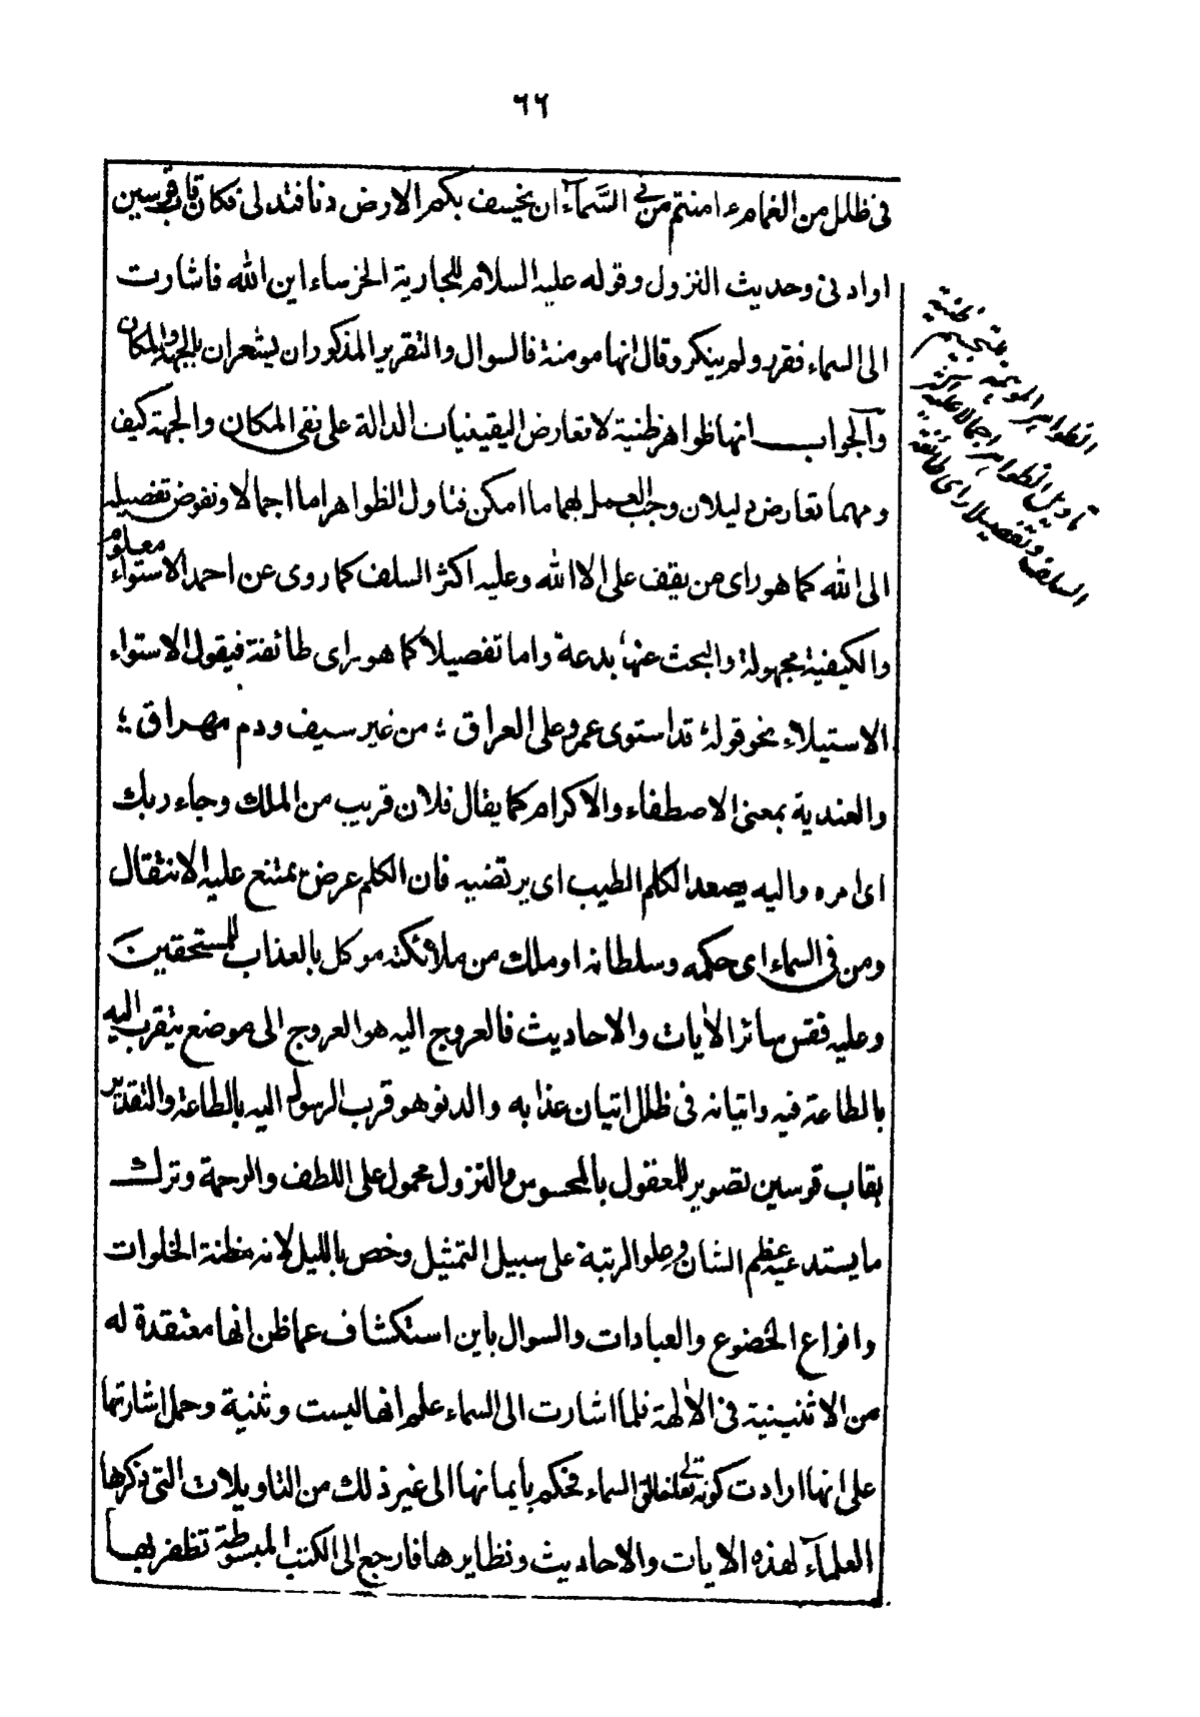 ٦٦
فى ظلل من الغمام ءامنتم من فى السَّمآء ان يخسف بكم الارض دنا فتدلى فكان قاب قوسين
او ادنى وحديث النزول وقوله عليه السلام للجارية الخرساء اين الله فاشارت
الى السماء فقرر ولم ينكر وقال انها مومنة فالسوال والتقرير المذكوران يشعران بالجهة والمكان
وآلجواب انها ظواهر ظنية لا تعارض اليقينيات الدالة على نفى المكان والجهة كيف
ومهما تعارض دليلان وجب العمل بهما ما امكن فتاول الظواهر اما اجمالا ونفوض تفصيله
الى الله كما هو راى من يقف على الا الله وعليه اكثر السلف كما روى عن احمد الاستواء معلوم
والكيفية مجهولة والبحث عنها بدعة واما تفصيلا كما هو راى طائفة فيقول الاستواء
الاستيلاء نحو قوله قد استوى عمرو على العراق ؛ من غير سيف ودم مهراق ؛
والعندية بمعنى الاصطفاء والاكرام كما يقال فلان قريب من الملك وجاء ربك
اى امره واليه يصعد الكلم الطيب اى يرتضيه فان الكلم عرض يمتنع عليه الانتقال
ومن فى السماء اى حكمه وسلطانه او ملك من ملائكته موكل بالعذاب للمستحقين
وعليه فقس سائر الأيات والاحاديث فالعروج اليه هو العروج الى موضع يتقرب اليه
بالطاعة فيه واتيانه فى ظلل اتيان عذابه والدنو هو قرب الرسول اليه بالطاعة والتقدير
بقاب قوسين تصوير للمعقول بالمحسوس والنزول محمول على اللطف والرحمة وترك
ما يستدعيه عظم الشان وعلو الرتبة على سبيل التمثيل وخص بالليل لانه مظنة الخلوات
وانواع الخضوع والعبادات والسوال باين استكشاف عما ظن انها معتقدة له
من الاثنينية فى الألهة فلما اشارت الى السماء علم انها ليست وثنية وحمل اشارتها
على انها ارادت كونه تعالى خالق السماء فحكم بايمانها الى غير ذلك من التاويلات التى ذكرها
العلمآء لهذه الايات والاحاديث ونظايرها فارجع الى الكتب المبسوطة تظفر بها
الظواهر الموهمة للتجسيم ظنية
تاويل الظواهر اجمالا عليه اكثر
السلف وتفصيلا راى طائفة